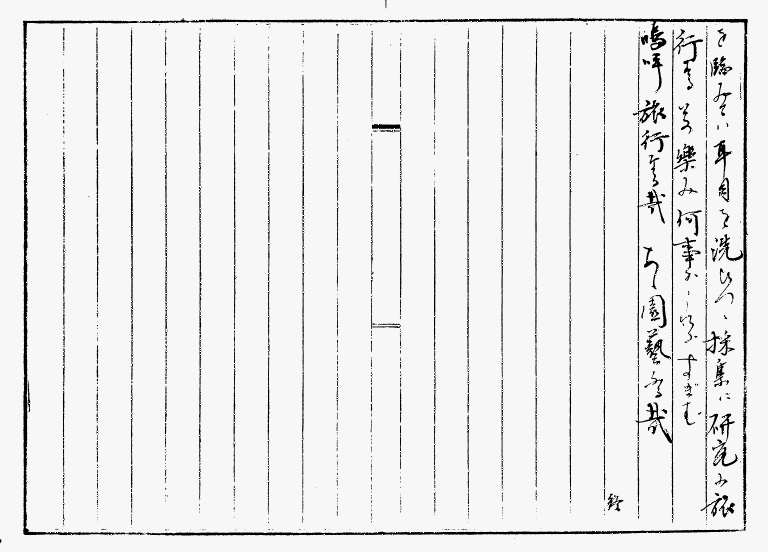 を臨みては耳目を洗ひつゝ採集に研究に旅
行する其楽み何事かこれにすぎむ
嗚呼旅行なる哉 あゝ園藝なる哉
終